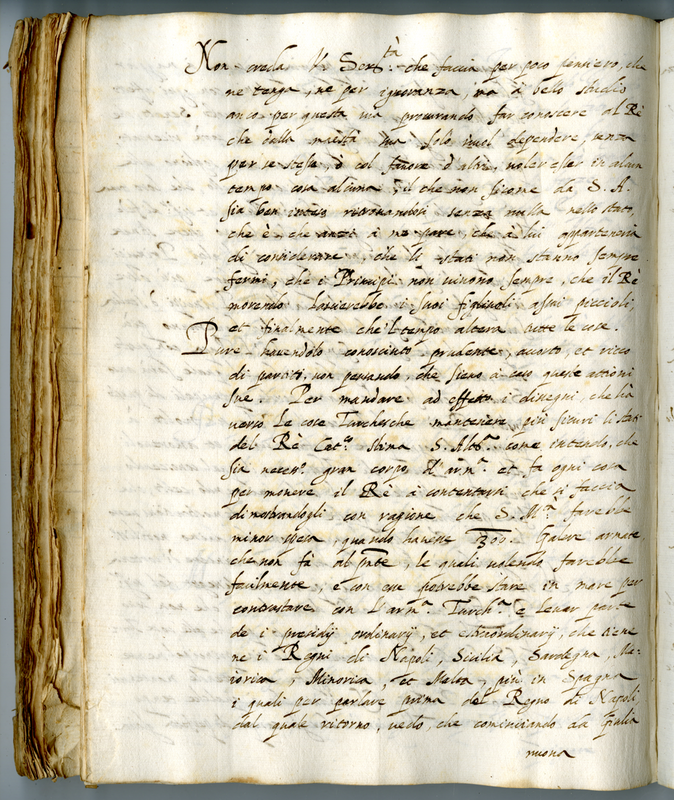 Non creda V. Ser.tà che faccia per poco pensiero, che
ne tenga, ne per ignoranza, ma à bello studio
anco per questa via procurando far conoscere al Rè
che dalla maestà sua solo vuol dependere, senza
per se stesso, ò col favore d'altri, voler esser in alcun
tempo cosa alcuna, il che non sicome da S. A.
sia ben inteso ritrovandosi senza nulla nello stato,
che è, che anzi à me pare, che à lui apparteneria
di considerare, che li stati non stanno sempre
fermi, che i Principi non vivono sempre, che il Rè
morendo, lasciarebbe i suoi figliuoli assai piccioli,
et finalmente che'l tempo altera tutte le cose.
Pure havendolo conosciuto prudente, accorto, et ricco
di partiti, non pensando, che sieno à caso queste attioni
sue. Per mandare ad effetto i disegni, che hà
verso le cose Turchesche mantenere più sicuri li stati
del Rè Cat.co stima S. Alt.a come intendo, che
sia necess.o gran corpo d'arm.a et fa ogni cosa
per movere il Rè à contentarsi che si faccia
dimostrandogli con ragione che S. M.tà farebbe
minor spesa, quando havesse 300. Galere armate
che non fà al pnte, le quali volendo farebbe
facilmente, e con esse potrebbe stare in mare per
contrastare con l'arm.a Turch.a e levar parte
de i presidij ordinarij, et estraordinarij, che tiene
ne i Regni di Napoli, Sicilia, Sardegna, Ma-
iorica, Minorica, et Malta, più in Spagna
i quali per parlare prima del Regno di Napoli
dal quale ritorno, vedo, che cominciando da Giulia
nuova